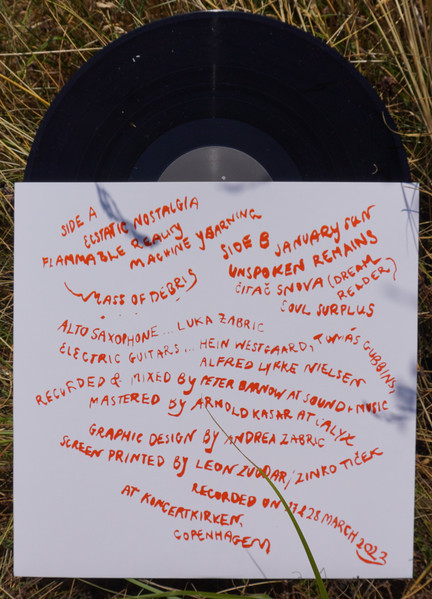 SIDE A
ECSTATIC NOSTALGIA
FLAMMABLE REALITY
MACHINE YEARNING
MASS OF DEBRIS
SIDE B JANUARY SUN
UNSPOKEN REMAINS
ČITAČ SNOVA (DREAM
READER)
SOUL SURPLUS
ALTO SAXOPHONE... LUKA ZABRIC
ELECTRIC GUITARS... HEIN WESTGAARD, TOMÁS GUBBINS,
ALFRED LYKKE NIELSEN
RECORDED & MIXED BY PETER BARNOW AT SOUND & MUSIC
MASTERED BY ARNOLD KASAR AT CALYX
GRAPHIC DESIGN BY ANDREA ZABRIC
SCREEN PRINTED BY LEON ZUODAR, ZINKO TIČEK
RECORDED ON & 28 MARCH 2023
AT KONCERTKIRKEN,
COPENHAGEN